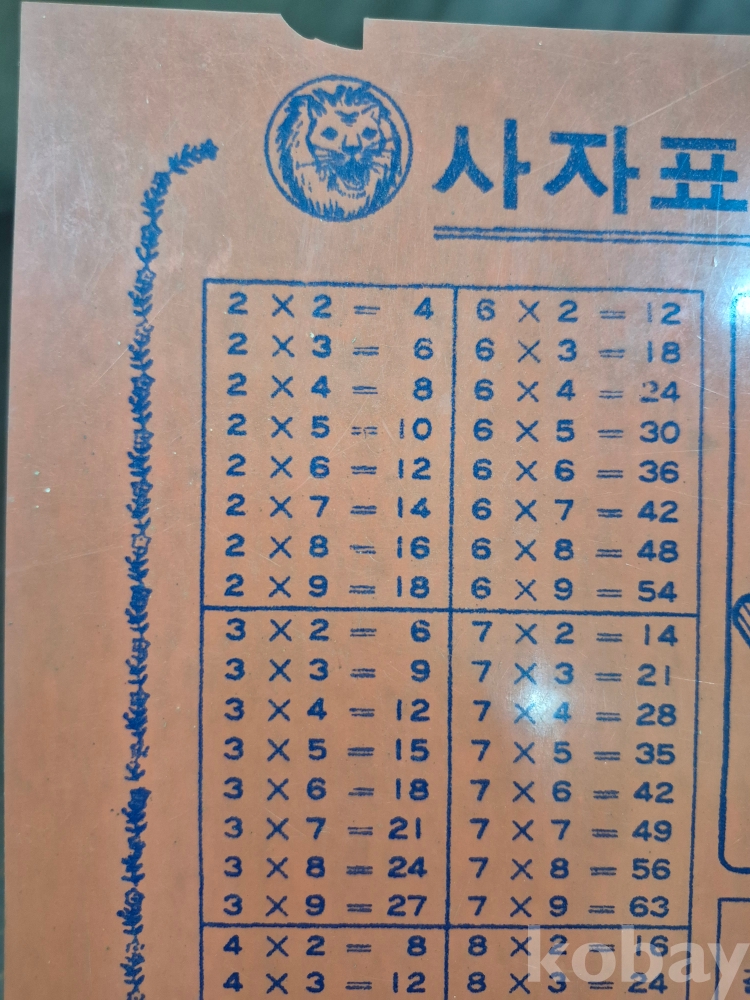 사자표
2 × 2 = 4
2 × 3 = 6
2 × 4 = 8
2 × 5 = 10
2 × 6 = 12
2 × 7 = 14
2 × 8 = 16
2 × 9 = 18
3 × 2 = 6
3 × 3 = 9
3 × 4 = 12
3 × 5 = 15
3 × 6 = 18
3 × 7 = 21
3 × 8 = 24
3 × 9 = 27
4 × 2 = 8
4 × 3 = 12
6 × 2 = 12
6 × 3 = 18
6 × 4 = 24
6 × 5 = 30
6 × 6 = 36
6 × 7 = 42
6 × 8 = 48
6 × 9 = 54
7 × 2 = 14
7 × 3 = 21
7 × 4 = 28
7 × 5 = 35
7 × 6 = 42
7 × 7 = 49
7 × 8 = 56
7 × 9 = 63
8 × 2 = 16
8 × 3 = 24
kobay